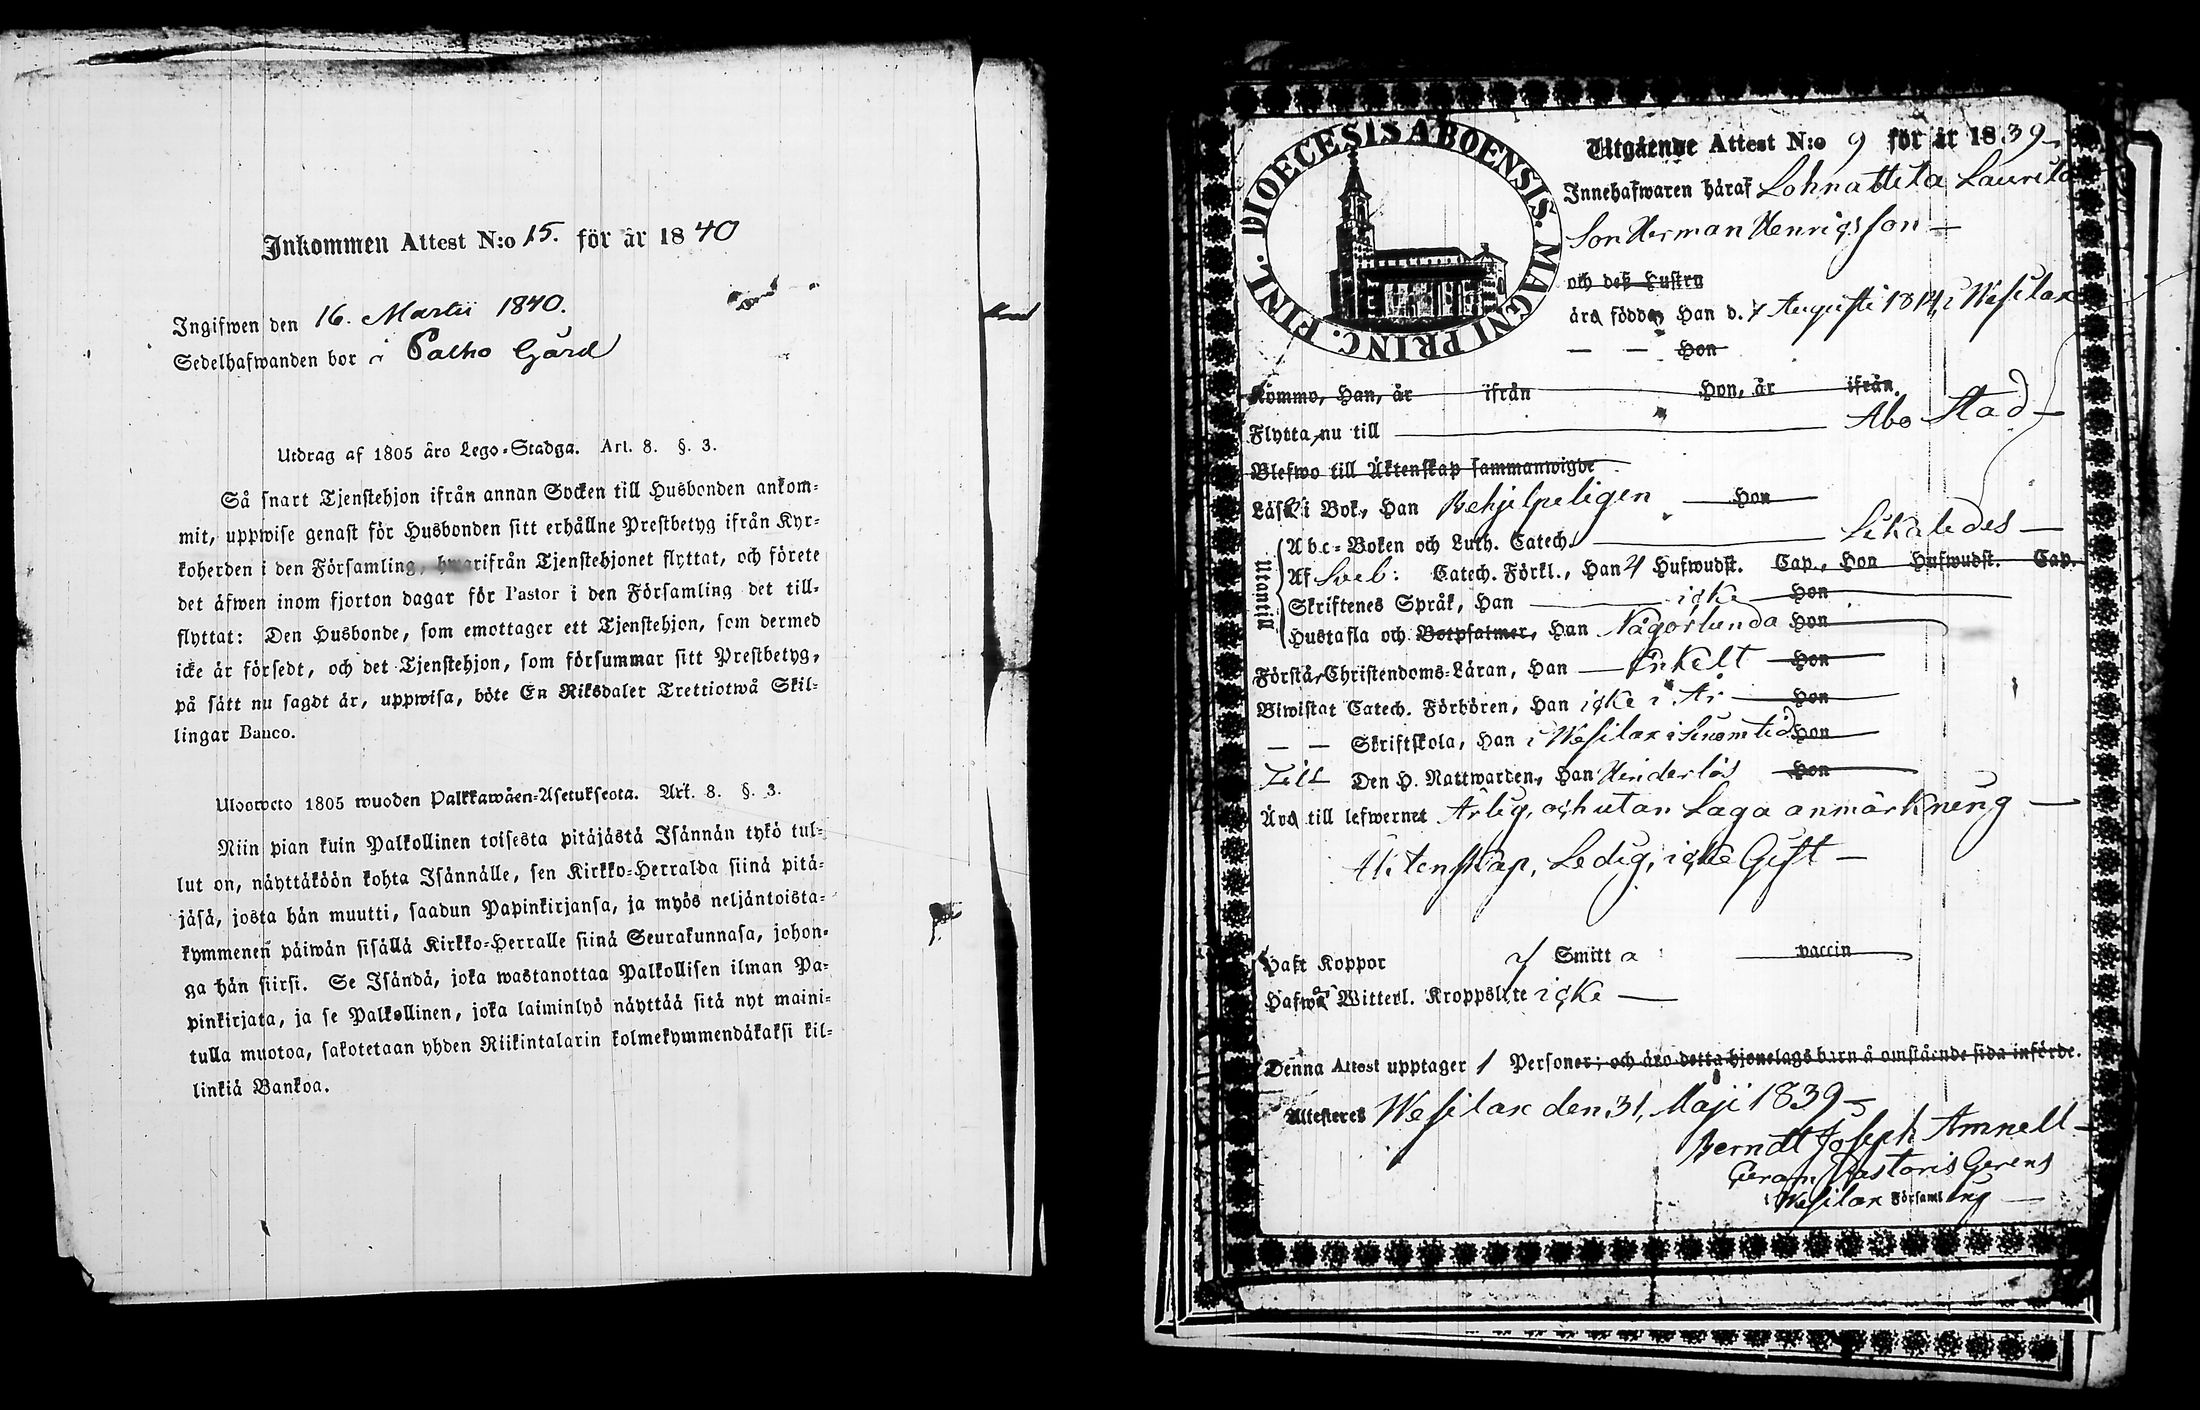 Inkommen Attest N:o 15. för år 1840
Ingifwen den 16. Martii 1840.
Sedelhafwanden bor i Palho Gård
Utdrag af 1805 åra Lego-Stadga. Art. 8. §. 3.
Så snart Tjenstehjon ifrån annan Socken till Husbonden ankom-
mit, uppwise genast för Husbonden sitt erhållne Prestbetyg ifrån Kyr-
koherden i den Församling, hwarifrån Tjenstehjonet flyttat, och förete
det äfwen inom fjorton dagar för Pastor i den Församling det till-
flyttat: Den Husbonde, som emottager ett Tjenstehjon, som dermed
icke är försedt, och det Tjenstehjon, som försummar sitt Prestbetyg,
på sätt nu sagdt är, uppwisa, böte En Riksdaler Trettiotwå Skil-
lingar Banco.
Ulosweto 1805 wuoden Palkkawäen-Asetuksesta. Art. 8. §. 3.
Niin pian kuin Palkollinen toisesta pitäjästä Isännän tykö tul-
lut on, näyttäköön kohta Isännälle, sen Kirkko-Herralda siinä pitä-
jäsä, josta hän muutti, saadun Papinkirjansa, ja myös neljäntoista-
kymmenen päiwän sisällä Kirkko-Herralle siinä Seurakunnasa, johon-
ga hän siirsi. Se Isändä, joka wastanottaa Palkollisen ilman Pa-
pinkirjata, ja se Palkollinen, joka laiminlyö näyttää sitä nyt maini-
tulla muotoa, sakotetaan yhden Riikintalarin kolmekymmendäkaksi kil-
linkiä Bankoa.
DIOECESIS ABOENSIS. MAGNI PRINC. FINL.
Utgående Attest N:o 9 för år 1839
Innehafwaren häraf Lohnattila Laurila
Son Herman Henrigsson
och deß Hustru
äro födda Han d. 7 Augusti 1814 i Wesilax
— — Hon
Kommo, Han, år ifrån Hon, år ifrån
Flytta nu till Abo Stad
Blefwo till Äktenskap sammanwigde
Läsa i Bok, Han Behjelpeligen Hon
Utantill
Abc-Boken och Luth. Catech. Likaledes
Af Sveb: Catech. Förkl., Han 4 Hufwudst. Cap., Hon Hufwudst. Cap.
Skriftenes Språk, Han icke Hon
Hustafla och Botpsalmer, Han Någorlunda Hon
Förstå Christendoms-Läran, Han Enkelt Hon
Biwistat Catech. Förhören, Han icke i År Hon
— — Skriftskola, Han i Wesilax i sinom tid Hon
Till Den H. Nattwarden, Han Hinderlös Hon
Äro till lefwernet Ärlig, och utan Laga anmärkning
Äktenskap, Ledig, icke Gift
Haft Koppor af Smitta vaccin
Hafwa Witterl. Kroppslyte icke
Denna Attest upptager 1 Personer; och äro detta hjonelags barn å omstående sida införde.
Attesteres Wesilax den 31, Maji 1839
Berndt Joseph Amnell
Pastoris Gerens
i Wesilax Församling